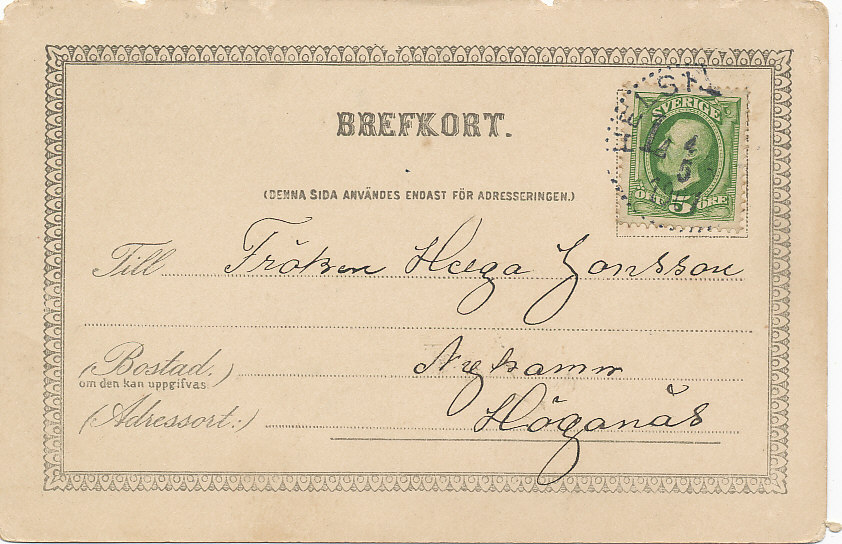 BREFKORT.
(DENNA SIDA ANVÄNDES ENDAST FÖR ADRESSERINGEN.)
SVERIGE
5
ÖRE
HELSI
4
5
Till Fröken Helga Jonsson
(Bostad.)
om den kan uppgifvas
Nyhamn
(Adressort:) Höganäs